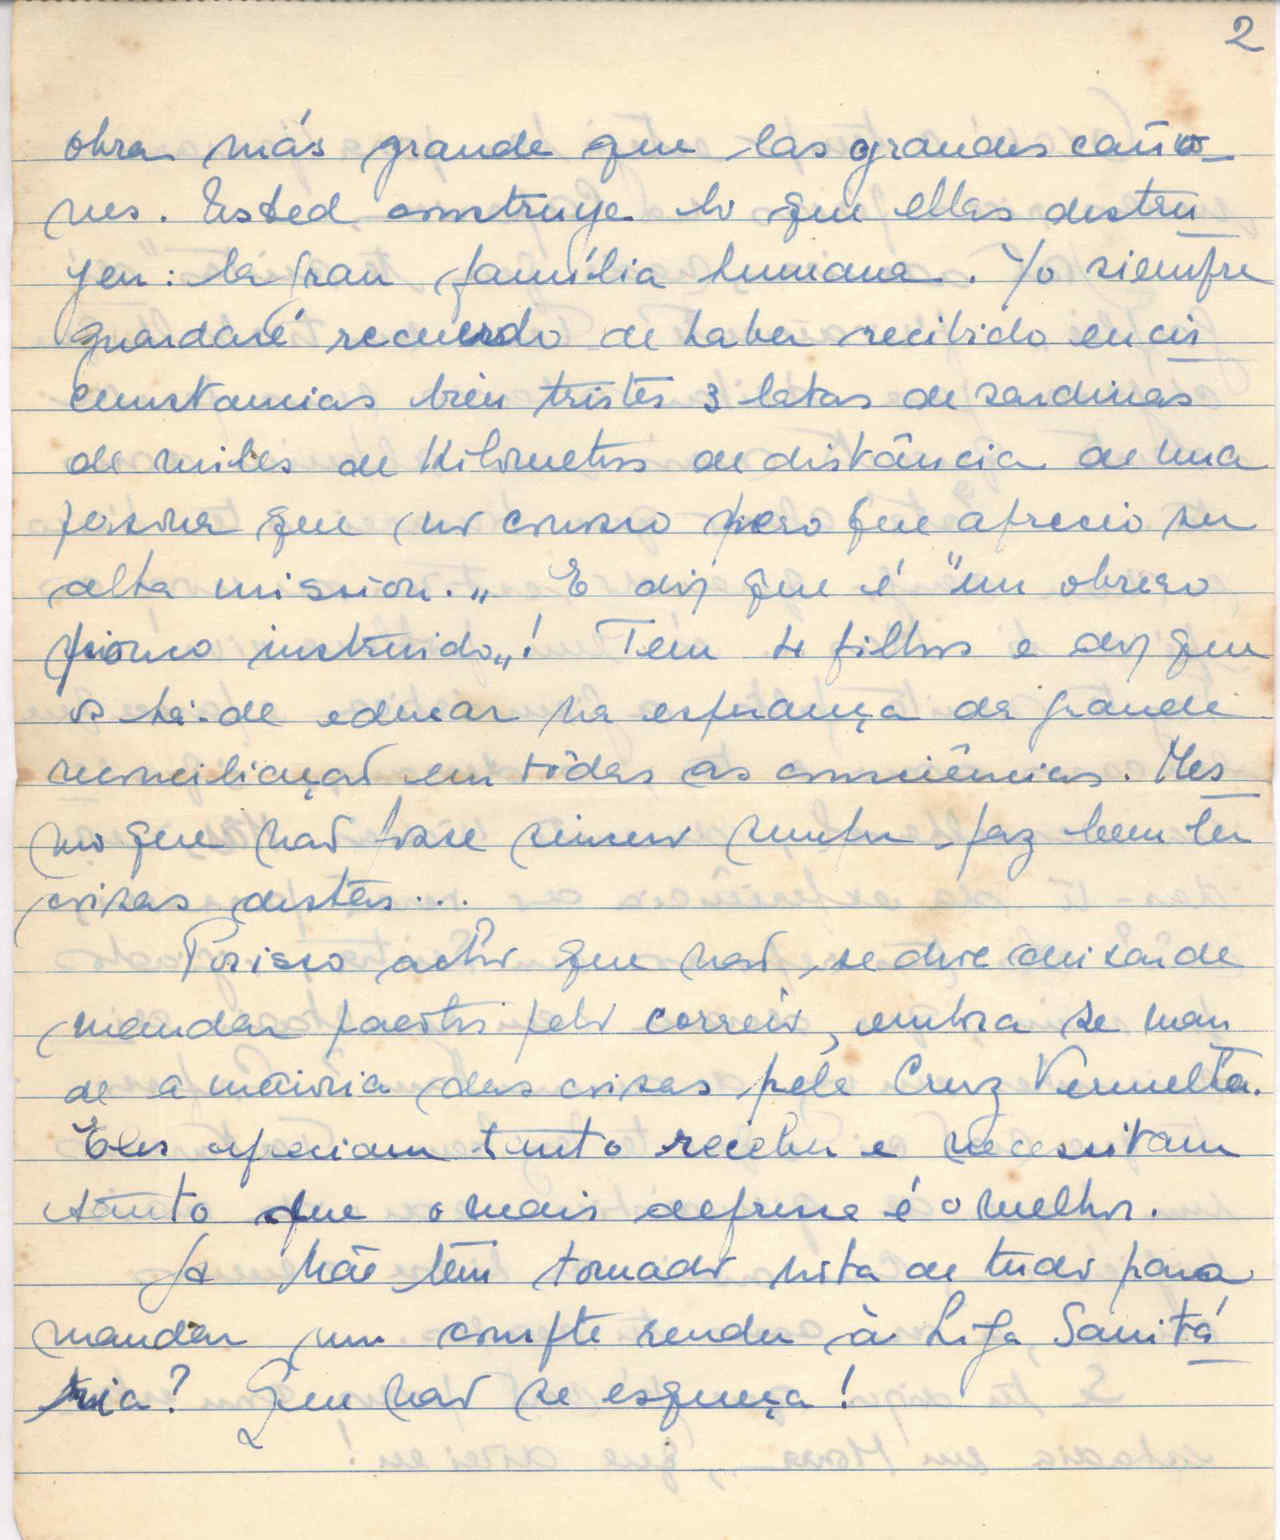 2
obra más grande que las grandes caño_
nes. Usted construye lo que ellas destru_
yen: la gran família humana. Yo siempre
guardaré recuerdo de haber recibido en cir_
cunstancias bien tristes 3 latas de sardinas
de miles de Kilometros de distância de una
persona que no conosco pero que aprecio su
alta mission.„ E diz que é "un obrero
poco instruido„! Tem 4 filhos e diz que
os há-de educar na esperança da grande
reconciliaçaõ em tôdas as consciências. Mes_
mo que naõ fosse sincero sempre faz bem ler
coisas destas...
Porisso acho que naõ se deve deixar de
mandar pacotes pelo correio, embora se man
de a maioria das coisas pela Cruz Vermelha.
Eles apreciam tanto receber e necessitam
tanto que o mais depressa é o melhor.
A Mãe têm tomado nota de tudo para
mandar um compte rendu à Liga Sanitá_
ria? Que naõ se esqueça!